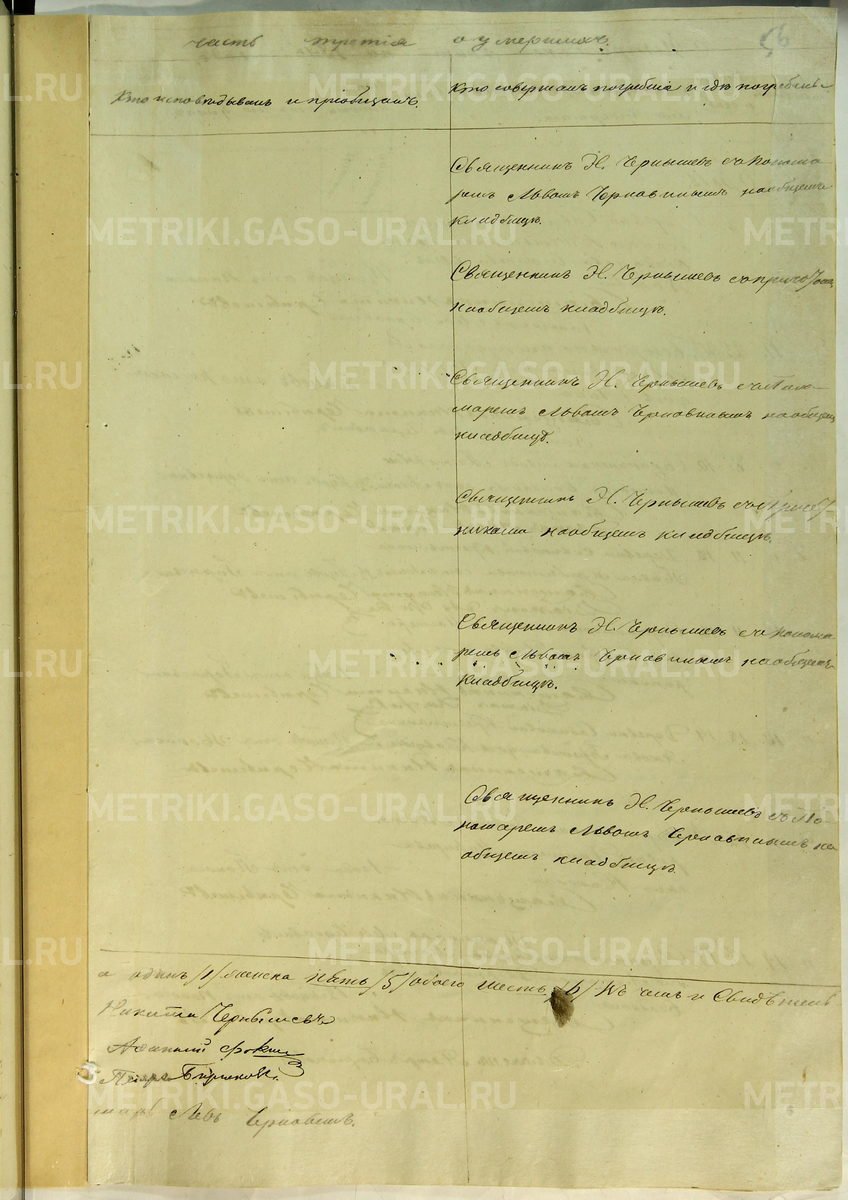 часть третія о умершихъ.
56
Кто исповѣдывалъ и пріобщалъ.
Кто совершалъ погребеніе и гдѣ погребены
Священникъ Н. Чернышевъ съ понома
ремъ Львомъ наобщемъ
кладбищѣ.
Священникъ Н. Чернышевъ съ
наобщемъ кладбищѣ.
Священникъ Н. Чернышевъ съ Поно-
маремъ Львомъ наобщемъ
кладбищѣ.
Священникъ Н. Чернышевъ съ
наобщемъ кладбищѣ.
Священникъ Н. Чернышевъ съ понома
ремъ Львомъ наобщемъ
кладбищѣ.
Священникъ Н. Чернышевъ съ По
номаремъ Львомъ на
общемъ кладбищѣ.
а одинъ /1/ женска пять /5/ обоего шесть /6/ Въ чемъ и Свидѣтель
Никита Чернышевъ
Петръ Бирюковъ.
марь Левъ
METRIKI.GASO-URAL.RU